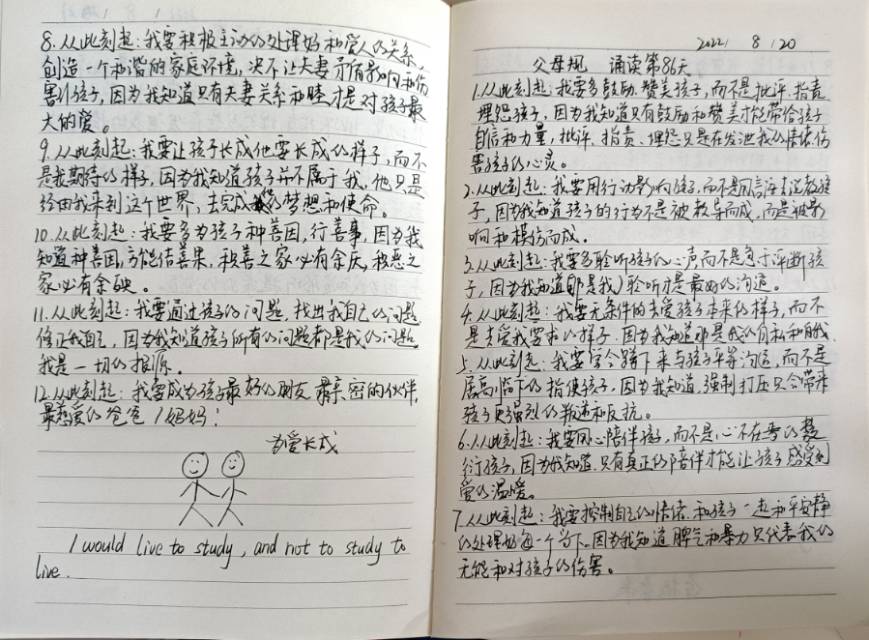 8.从此刻起:我要积极主动的处理好和爱人的关系,
创造一个和谐的家庭环境,决不让夫妻矛盾影响和伤
害到孩子,因为我知道只有夫妻关系和睦才是对孩子最
大的爱。
9.从此刻起:我要让孩子长成他要长成的样子,而不
是我期待的样子,因为我知道孩子并不属于我,他只是
经由我来到这个世界,去完成他的梦想和使命。
10.从此刻起:我要多为孩子种善因,行善事,因为我
知道种善因,方能结善果,积善之家必有余庆,积恶之
家必有余殃。
11.从此刻起:我要通过孩子的问题,找出我自己的问题,
修正我自己,因为我知道孩子所有的问题都是我的问题,
我是一切的根源。
12.从此刻起:我要成为孩子最好的朋友,最亲密的伙伴,
最热爱的爸爸/妈妈!
为爱长成
I would live to study, and not to study to
live.
2022 8 20
父母规 诵读第86天
1.从此刻起:我要多鼓励、赞美孩子,而不是批评、指责、
埋怨孩子,因为我知道只有鼓励和赞美才能带给孩子
自信和力量,批评、指责、埋怨只是在发泄我的情绪,伤
害孩子的心灵。
2.从此刻起:我要用行动影响孩子,而不是用言语去说教孩
子,因为我知道孩子的行为不是被教导而成,而是被影
响和模仿而成。
3.从此刻起:我要多聆听孩子的心声而不是急于评断孩
子,因为我知道聆听才是最好的沟通。
4.从此刻起:我要无条件的去爱孩子本来的样子,而不
是去爱我要求的样子,因为我知道那是我的自私和自我。
5.从此刻起:我要学会蹲下来与孩子平等沟通,而不是
居高临下的指使孩子,因为我知道,强制打压只会带来
孩子更强烈的叛逆和反抗。
6.从此刻起:我要用心陪伴孩子,而不是心不在焉的敷
衍孩子,因为我知道,只有真正的陪伴才能让孩子感受到
爱的温暖。
7.从此刻起:我要控制自己的情绪,和孩子一起和平安静
的处理好每一个当下,因为我知道脾气和暴力只代表我的
无能和对孩子的伤害。